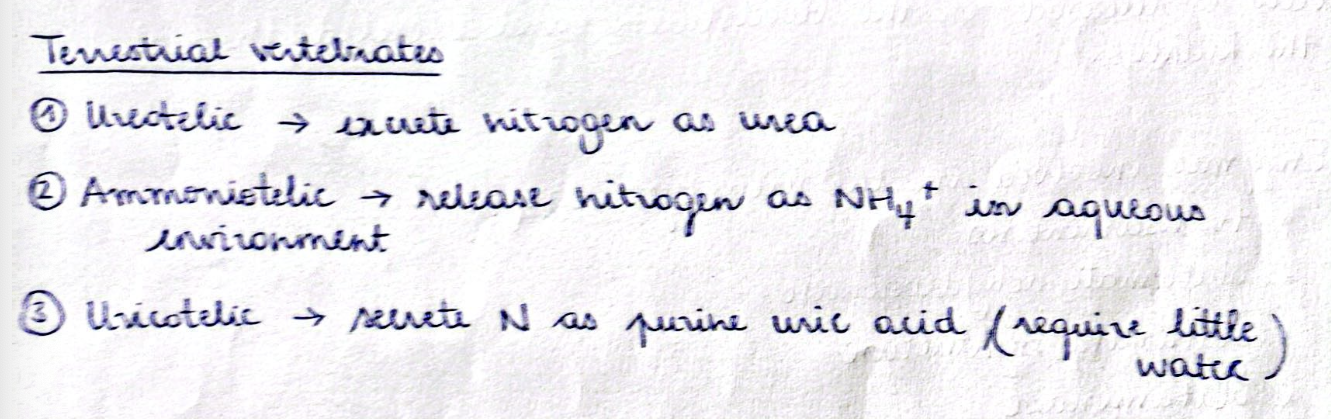 Terrestrial vertebrates
① Ureotelic → excrete nitrogen as urea
② Ammoniotelic → release nitrogen as NH₄⁺ in aqueous
environment
③ Uricotelic → secrete N as purine uric acid (require little
water)